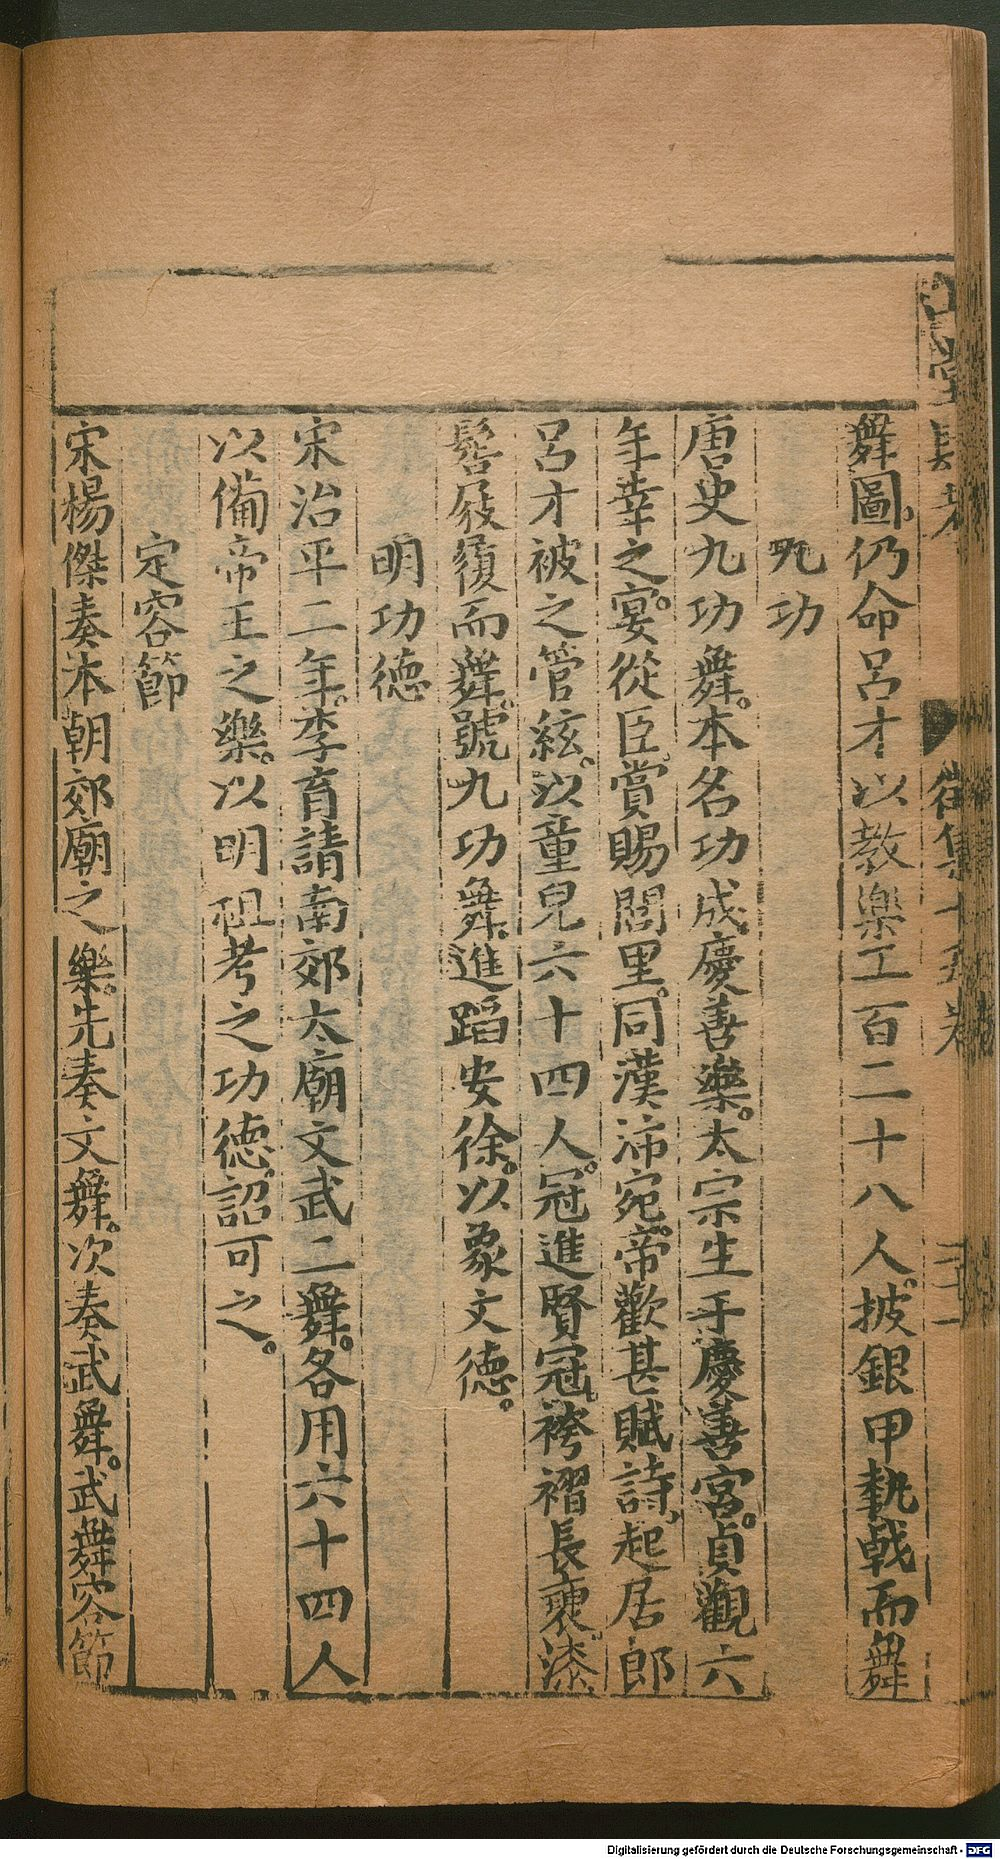 舞圖仍命呂才以教樂工百二十八人披銀甲執戟而舞
九功
唐史九功舞。本名功成慶善樂。太宗生于慶善宮。貞觀六
年幸之。宴從臣賞賜閭里。同漢沛宛。帝歡甚賦詩、起居郎
呂才被之管絃。以童兒六十四人。冠進賢冠、袴褶長褎。漆
髻屐履而舞。號九功舞。進蹈安徐。以象文德。
明功德
宋治平二年。李育請南郊太廟文武二舞。各用六十四人
以備帝王之樂。以明祖考之功德。詔可之。
定容節
宋楊傑奏本朝郊廟之樂。先奏文舞。次奏武舞。武舞容節
Digitalisierung gefördert durch die Deutsche Forschungsgemeinschaft - DFG